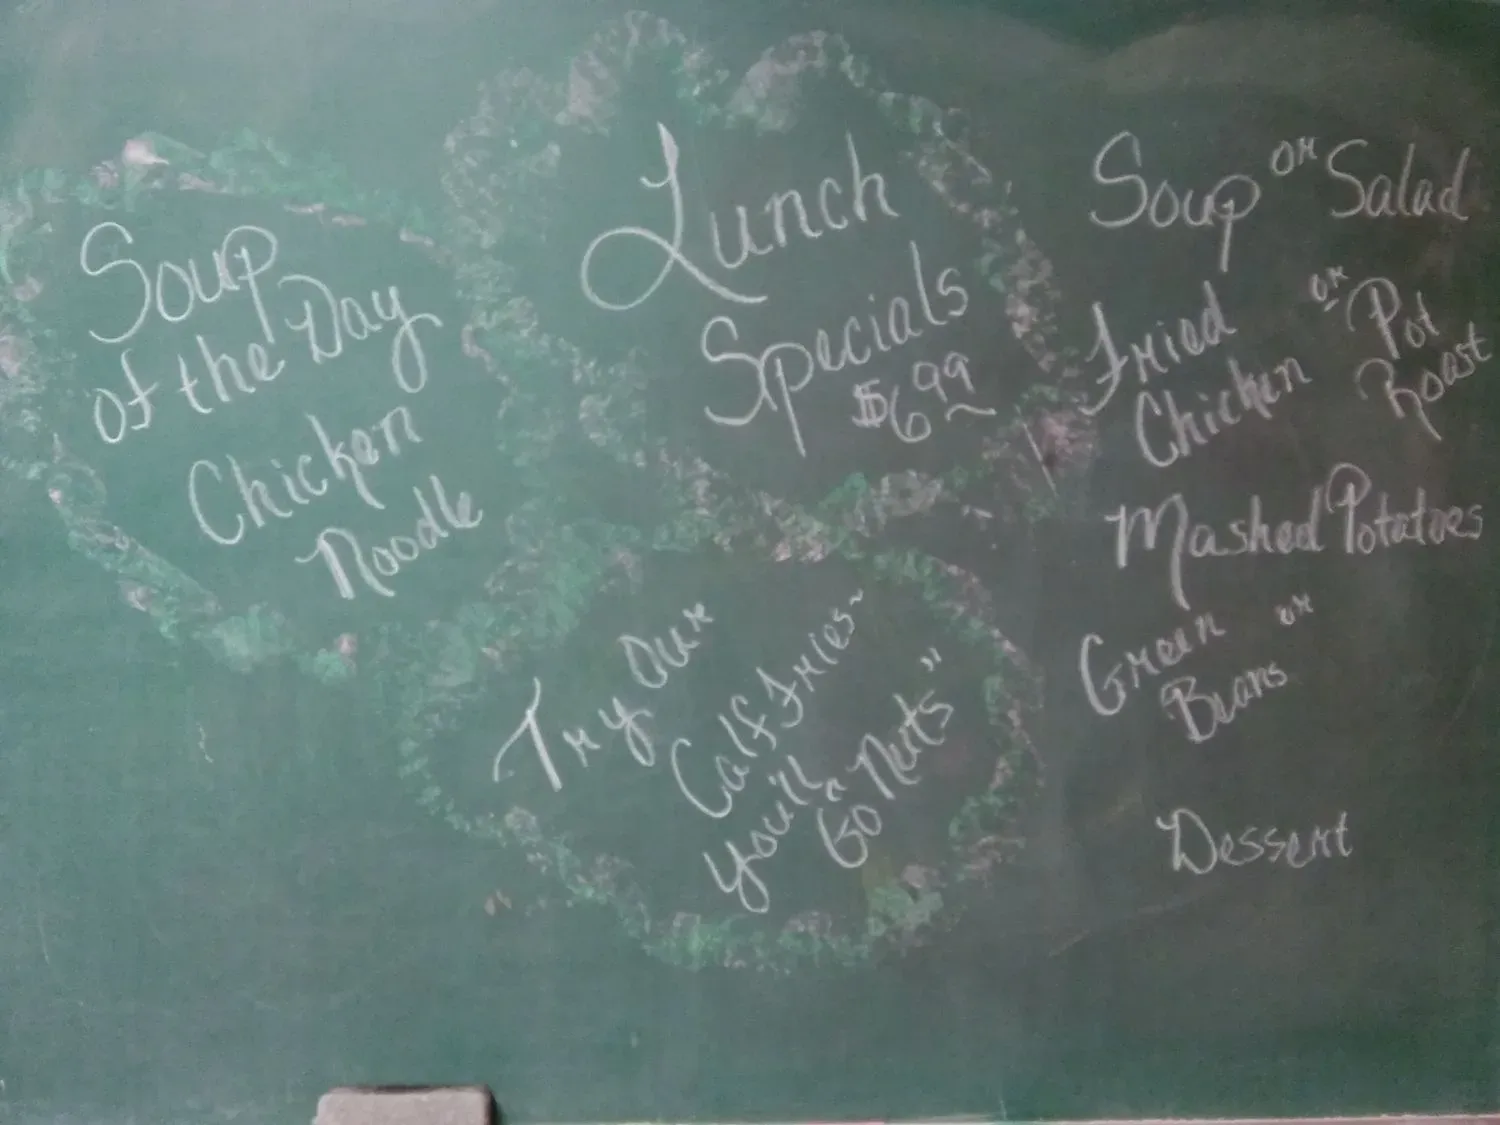 Soup
of the Day
Chicken
Noodle
Lunch
Specials
$6.99
Try our
Calf Fries~
you'll
Go "Nuts"
Soup or Salad
Fried or Pot
Chicken Roast
Mashed Potatoes
Green or
Beans
Dessert